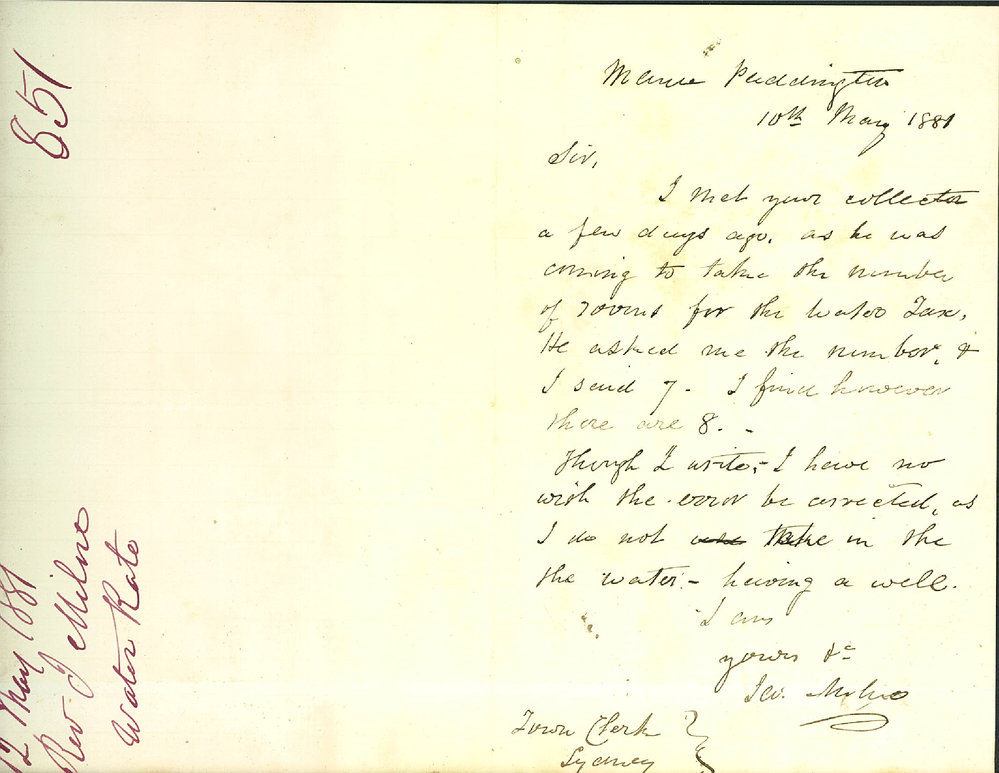 851
12 May 1881
Rev J Milne
Water Rate
Manse Paddington
10th May 1881
Sir,
I met your collector
a few days ago, as he was
coming to take the number
of rooms for the Water Tax,
He asked me the number, &
I said 7 - I find however
there are 8. -
Though I write, - I have no
wish the error be corrected, as
I do not use take in the
the water - having a well.
I am
yours &c
Milne
Town Clerk
Sydney